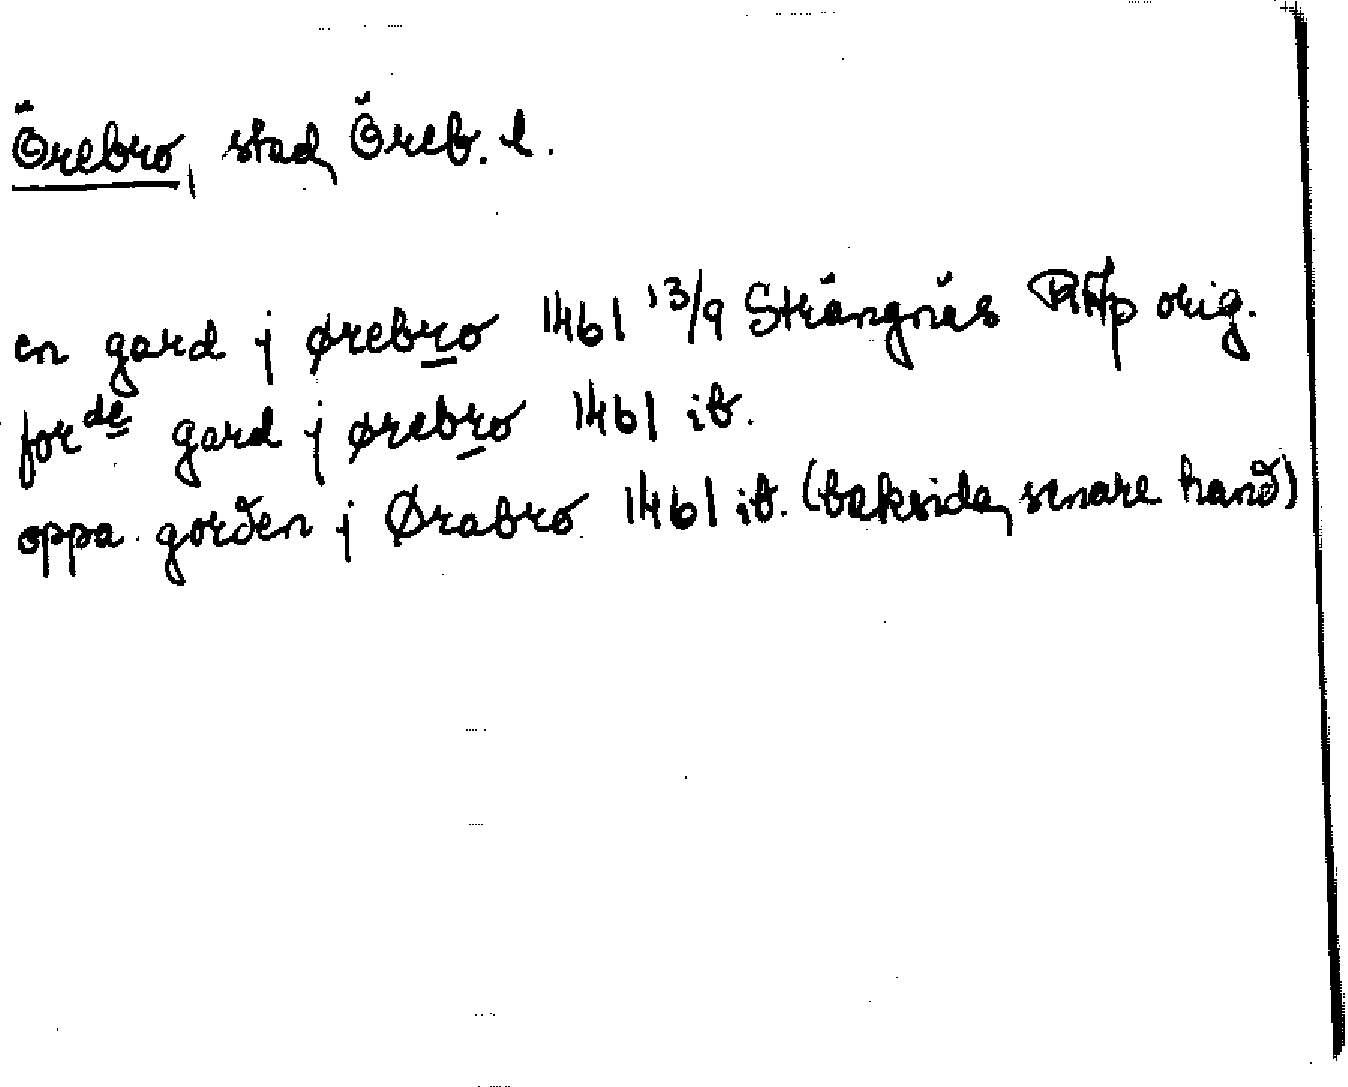 Örebro, stad, Öreb. l.
en gard j ørebro 1461 13/9 Strängnäs RAp orig.
forde gard j ørebro 1461 ib.
oppa gorden j Ørabro 1461 ib. (baksida, senare hand)